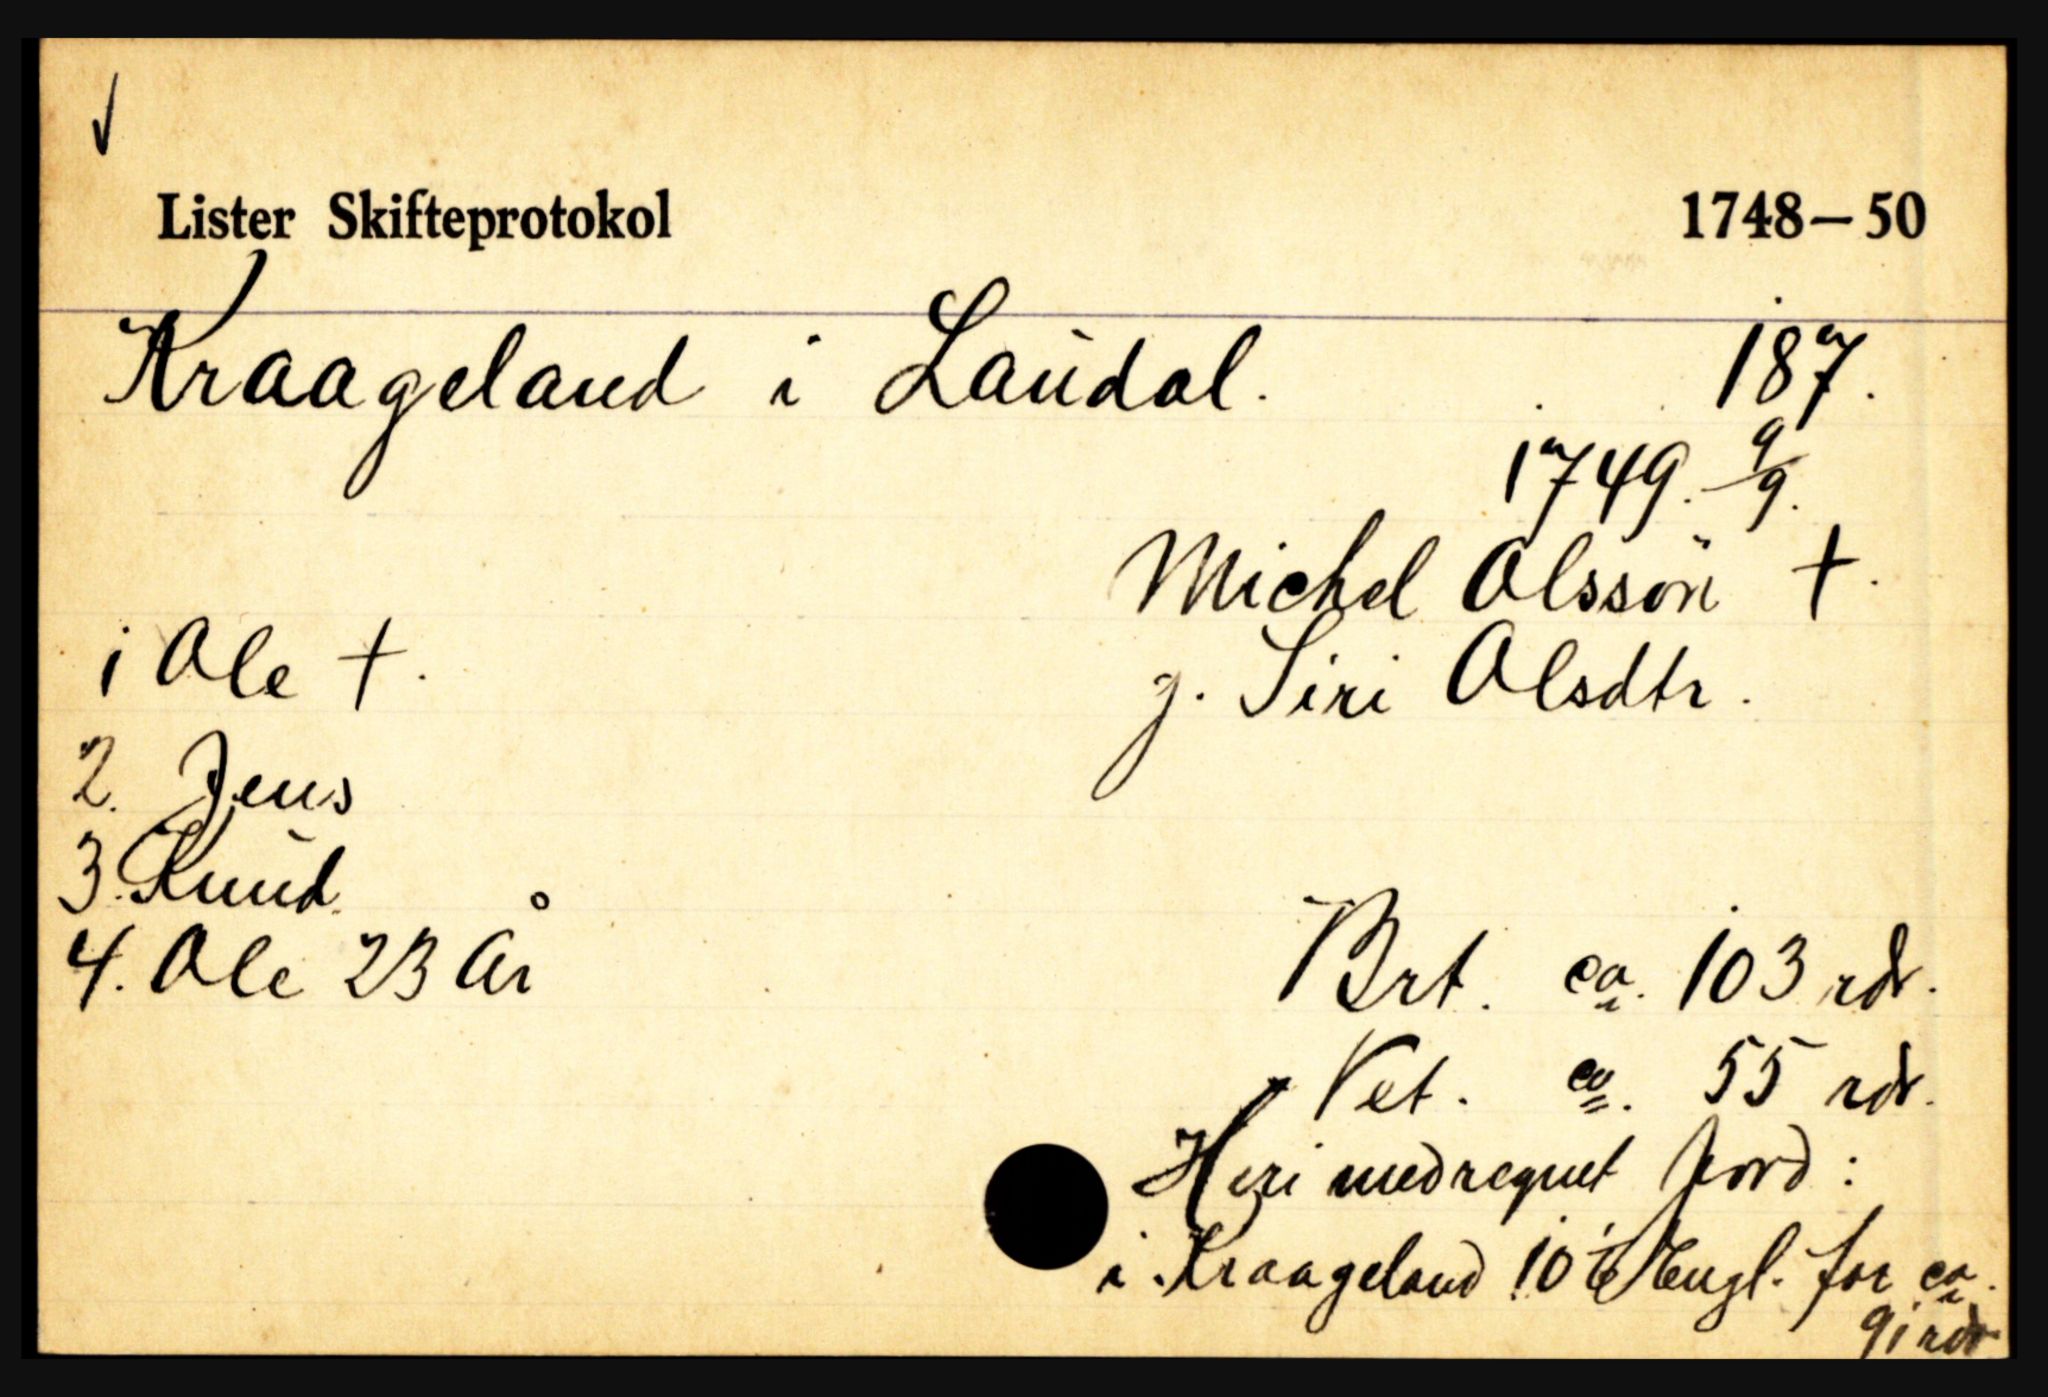 Lister Skifteprotokol 1748–50
Kraageland i Laudal. 187.
1749. 9/9.
Michel Olsson †.
g. Siri Olsdtr.
1 Ole †.
2. Jens
3. Knud
4. Ole 23 år
Brt. ca. 103 rdr.
Net. ca. 55 rdr.
Heri medregnet Jord:
i Kraageland 10 1/6 Engl. for ca.
91 rdr